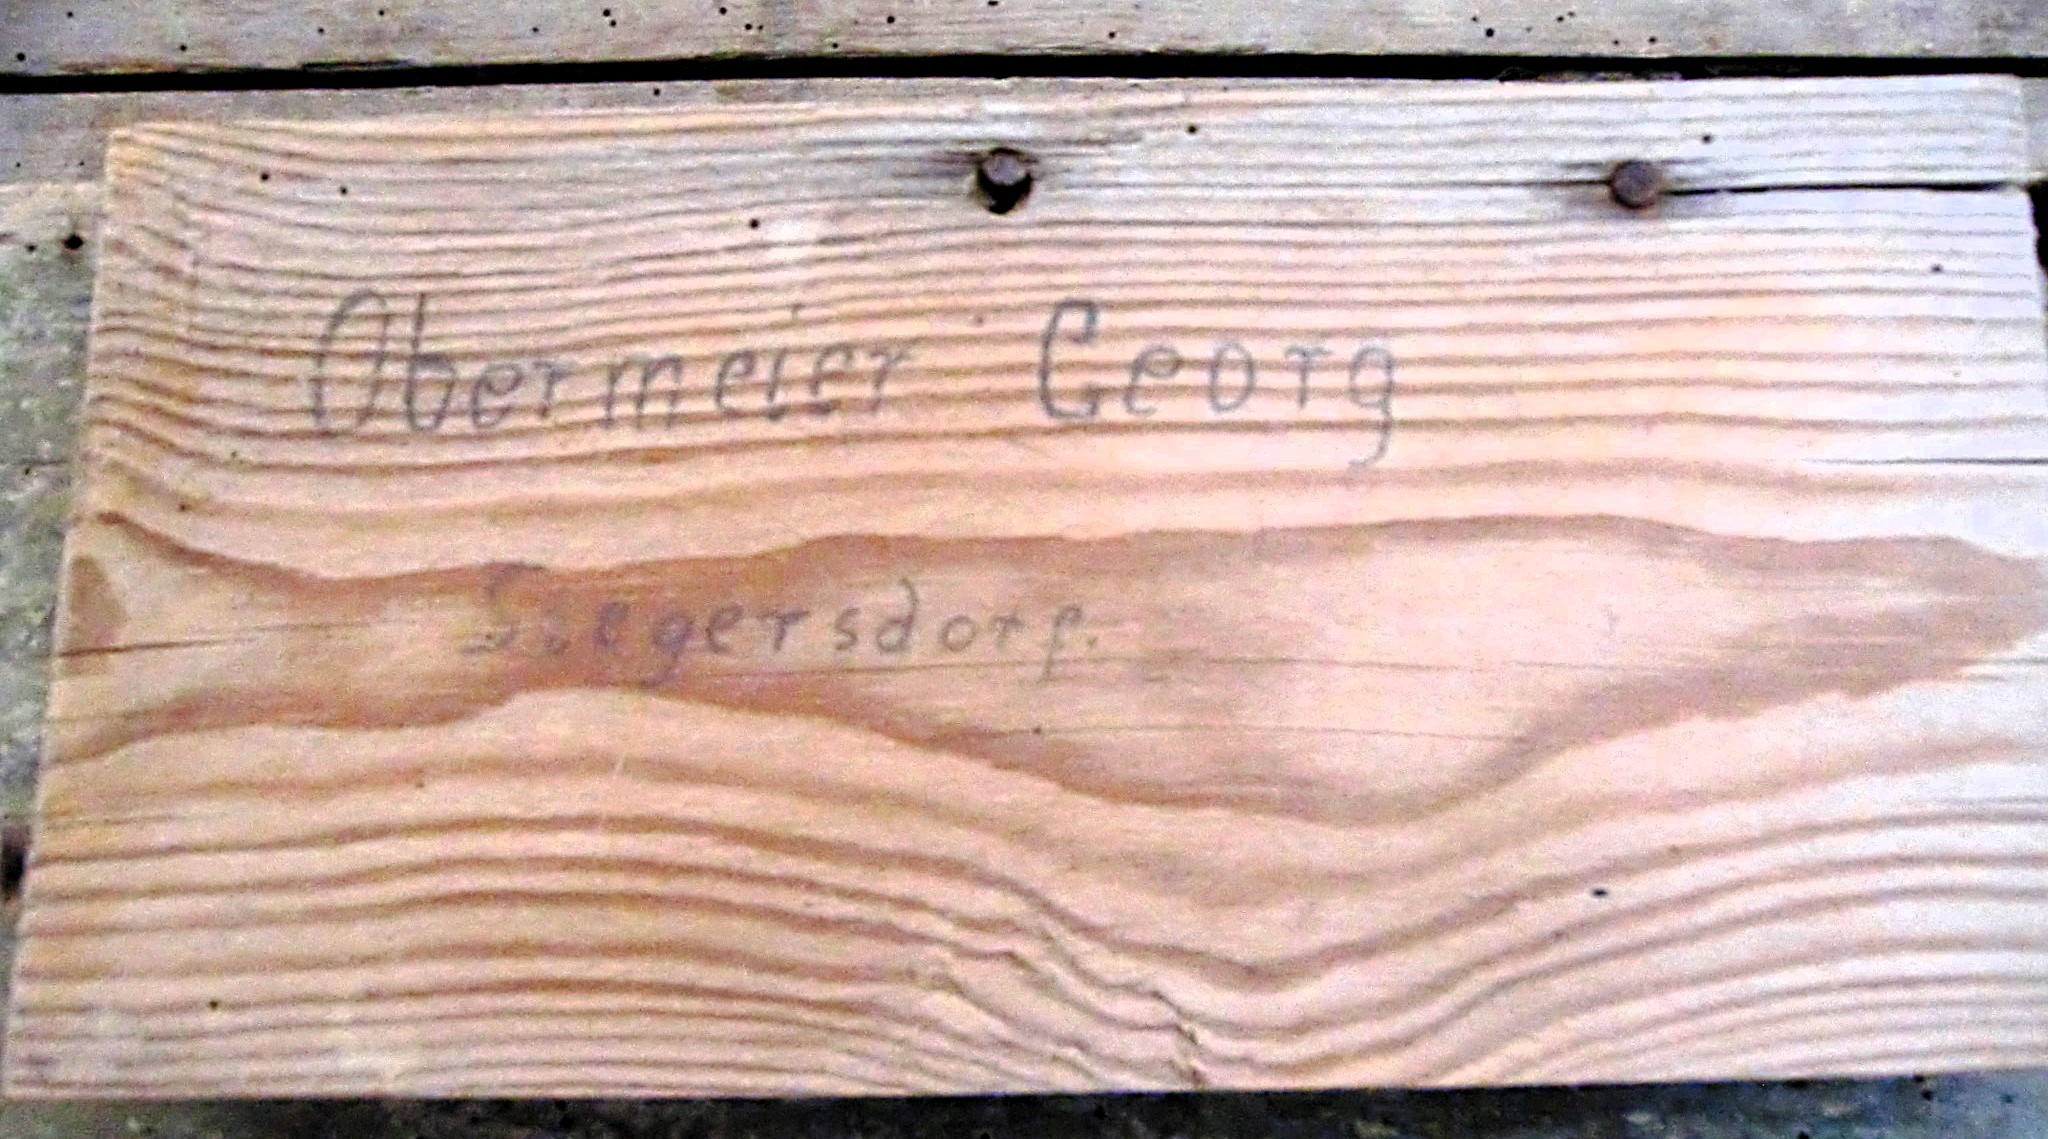 Obermeier Georg
Siegersdorf.